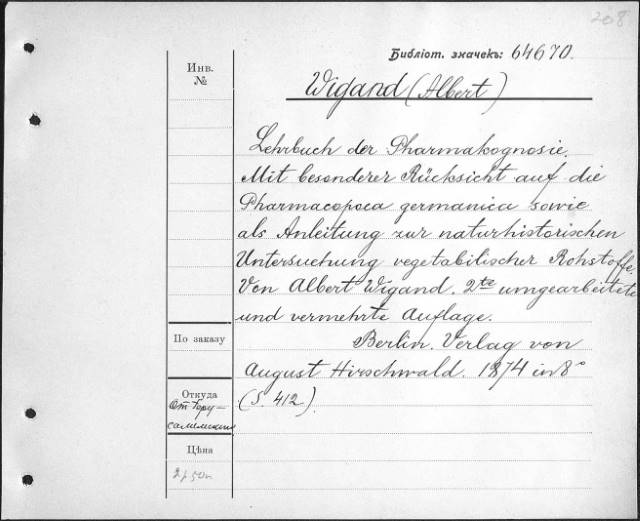 208
Библіот. значекъ: 64670.
Инв.
№
Wigand (Albert)
Lehrbuch der Pharmakognosie.
Mit besonderer Rücksicht auf die
Pharmacopoea germanica sowie
als Anleitung zur naturhistorischen
Untersuchung vegetabilischer Rohstoffe.
Von Albert Wigand. 2te umgearbeitete
und vermehrte Auflage.
Berlin. Verlag von
August Hirschwald. 1874 in 8°
(S. 412).
По заказу
Откуда
От Іеру-
салимскій
Цѣна